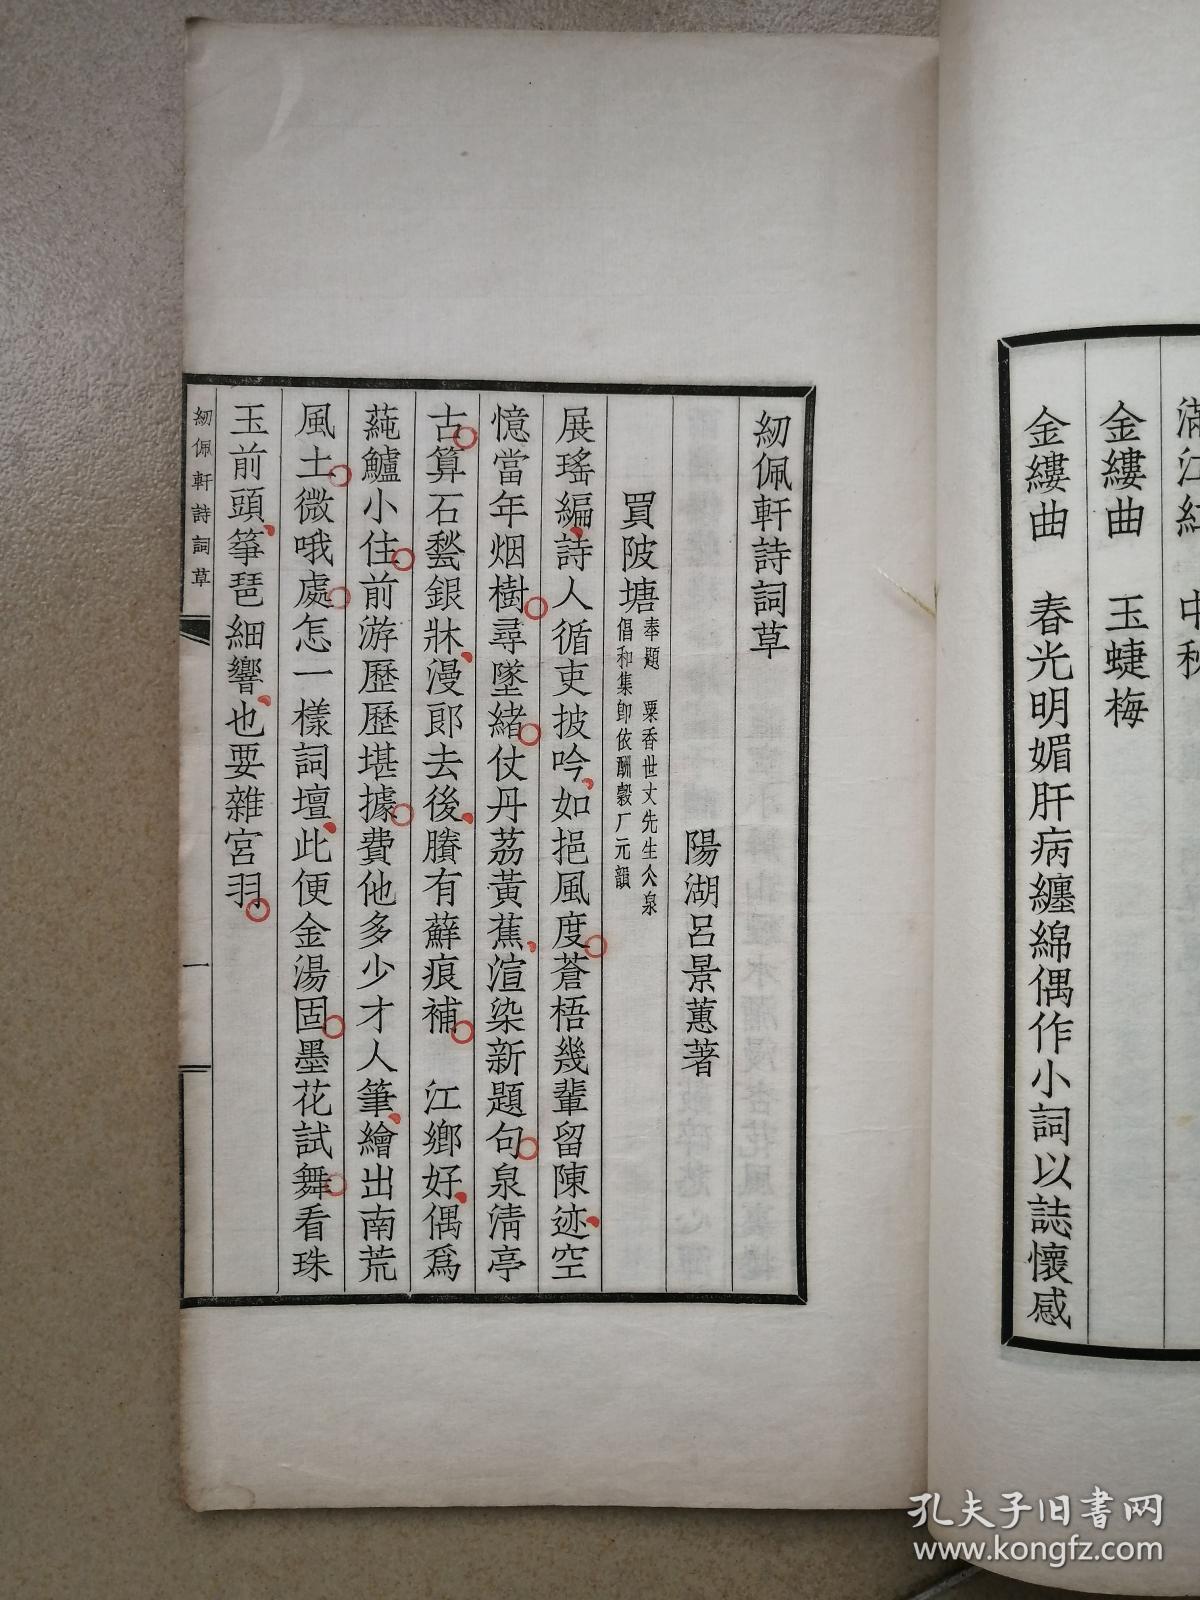 滿江紅　中秋
金縷曲　玉蜨梅
金縷曲　春光明媚肝病纏綿偶作小詞以誌懷感
紉佩軒詩詞草
陽湖呂景蕙著
買陂塘奉題　粟香世丈先生仌泉
倡和集卽依酬穀厂元韻
展瑤編詩人循吏披吟如挹風度蒼梧幾輩留陳迹空
憶當年烟樹尋墜緒仗丹荔黃蕉渲染新題句泉淸亭
古算石甃銀牀漫郎去後賸有蘚痕補　江鄉好偶爲
蒓鱸小住前游歷歷堪據費他多少才人筆繪出南荒
風土微哦處怎一樣詞壇此便金湯固墨花試舞看珠
玉前頭箏琶細響也要雜宮羽
紉佩軒詩詞草
一
孔夫子旧书网
www.kongfz.com